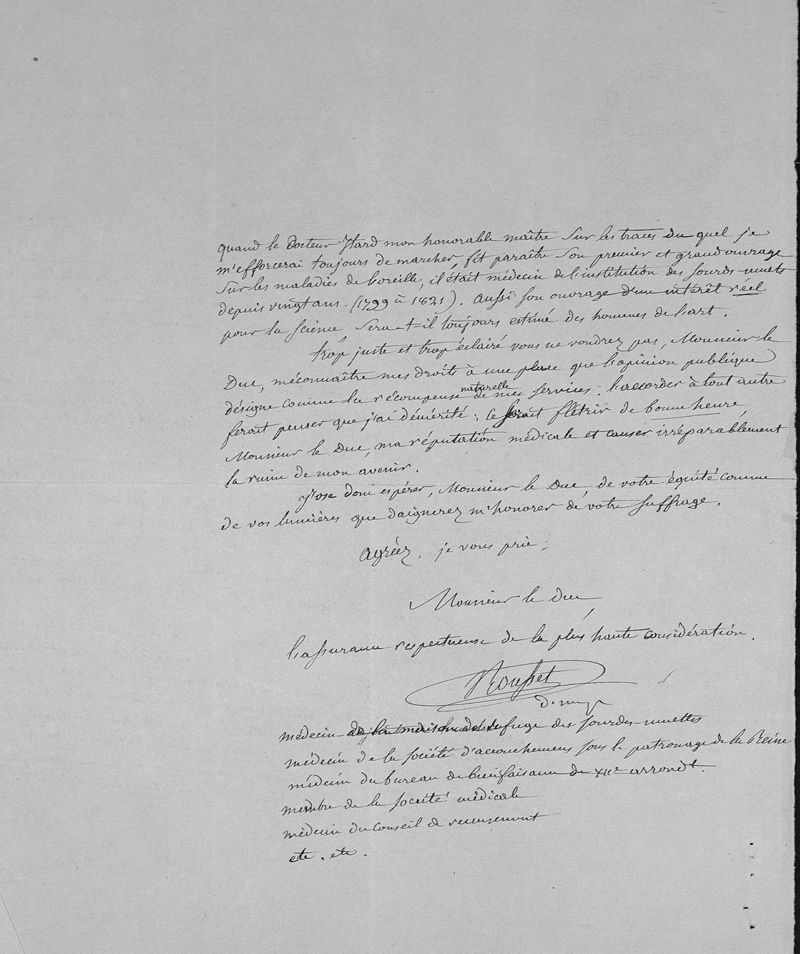 quand le Docteur Itard mon honorable maître sur les traces du quel je
m'efforcerai toujours de marcher, fit paraître son premier et grand ouvrage
sur les maladies de l'oreille, il était médecin de l'institution des sourds-muets
depuis vingt ans. (1799 à 1821). aussi son ouvrage d'un intérêt réel
pour la science sera-t-il toujours estimé des hommes de l'art.
trop juste et trop éclairé vous ne voudrez pas, Monsieur le
Duc, méconnaître mes droits à une place que l'opinion publique
désigne comme la récompense naturelle de mes services. l'accorder à tout autre
ferait penser que j'ai démérité; ce serait flétrir de bonne heure,
Monsieur le Duc, ma réputation médicale et causer irréparablement
la ruine de mon avenir.
J'ose donc espérer, Monsieur le Duc, de votre équité comme
de vos lumières que daignerez m'honorer de votre suffrage.
Agréez, je vous prie,
Monsieur le Duc,
l'assurance respectueuse de la plus haute considération.
Rousset
médecin du refuge des sourdes-muettes
médecin de la société d'accouchemens sous le patronage de la Reine
médecin du bureau de bienfaisance du XIIe arrondt.
membre de la société médicale
médecin du conseil de recensement
etc. etc.